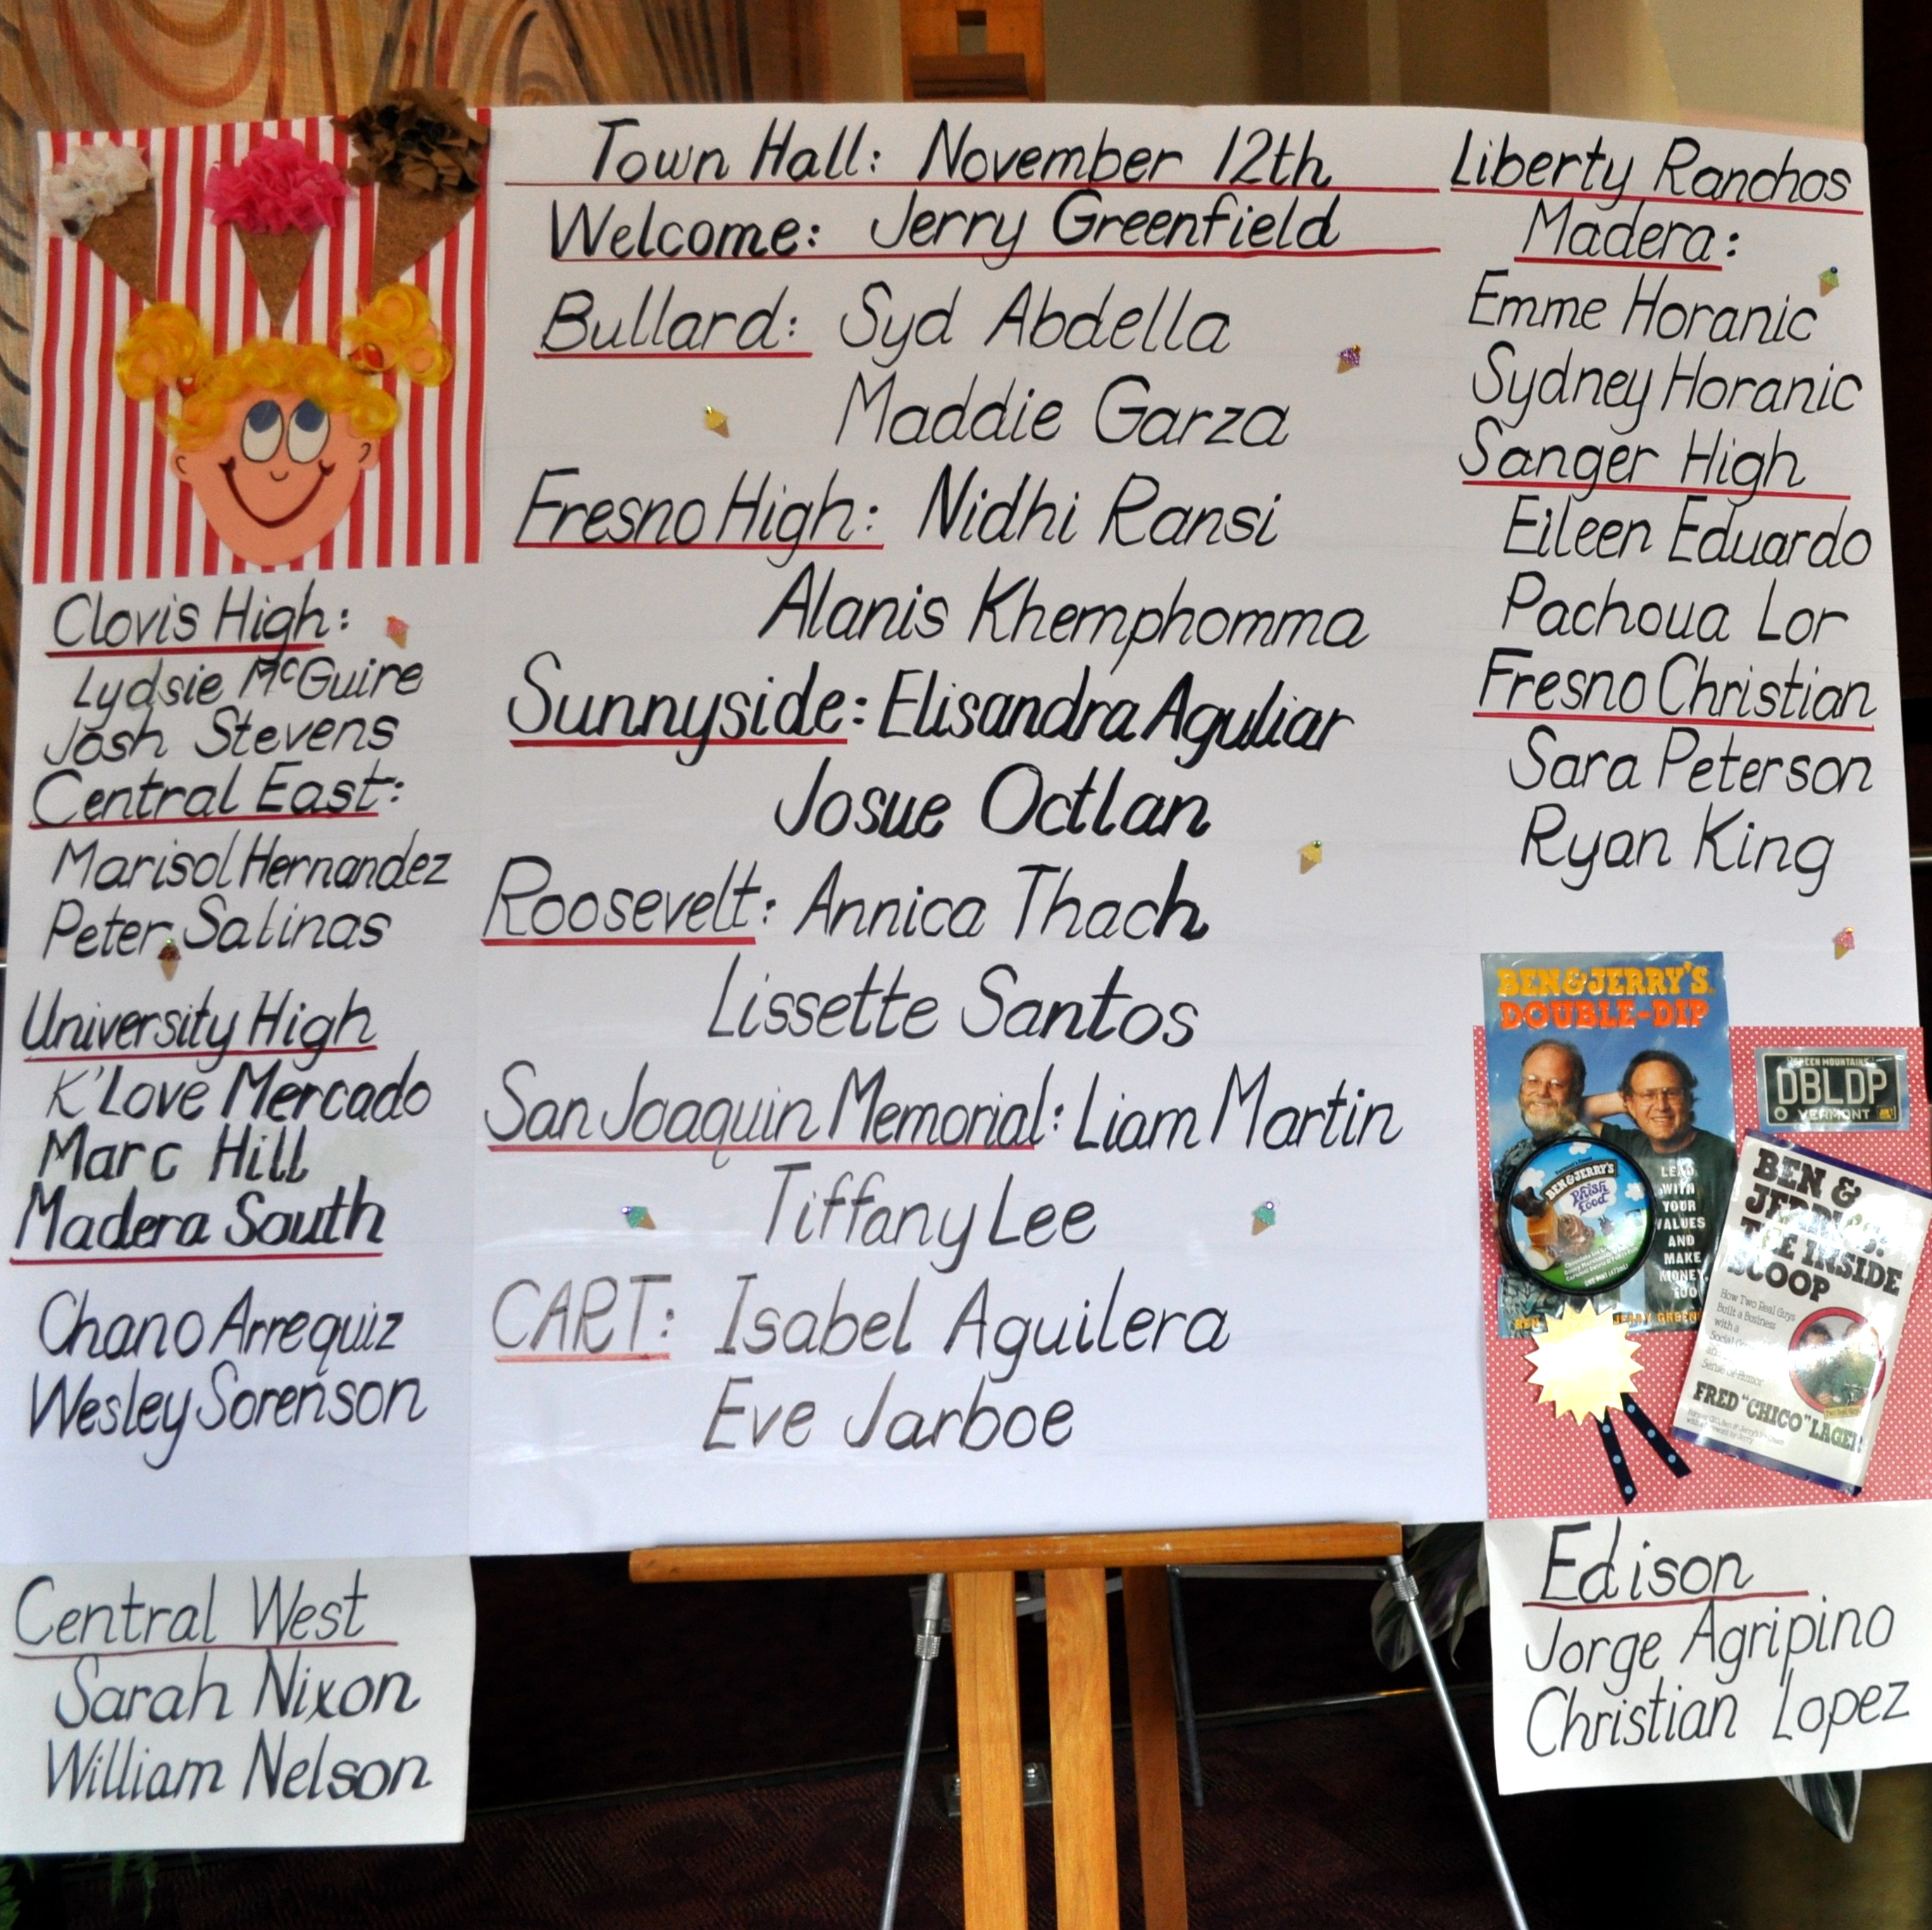 Town Hall: November 12th
Welcome: Jerry Greenfield
Bullard: Syd Abdella
Maddie Garza
Fresno High: Nidhi Ransi
Alanis Khemphomma
Sunnyside: Elisandra Aguliar
Josue Octlan
Roosevelt: Annica Thach
Lissette Santos
San Joaquin Memorial: Liam Martin
Tiffany Lee
CART: Isabel Aguilera
Eve Jarboe
Clovis High:
Lydsie McGuire
Josh Stevens
Central East:
Marisol Hernandez
Peter Salinas
University High
K'Love Mercado
Marc Hill
Madera South
Chano Arrequiz
Wesley Sorenson
Central West
Sarah Nixon
William Nelson
Liberty Ranchos
Madera:
Emme Horanic
Sydney Horanic
Sanger High
Eileen Eduardo
Pachoua Lor
Fresno Christian
Sara Peterson
Ryan King
BEN & JERRY'S
DOUBLE-DIP
LEAD
WITH
YOUR
VALUES
AND
MAKE
MONEY,
TOO
BEN & JERRY'S
Phish
Food
GREEN MOUNTAINS
DBLDP
VERMONT
BEN &
JERRY'S:
THE INSIDE
SCOOP
How Two Real Guys
Built a Business
with a
Sense of Humor
FRED "CHICO" LAGER
Edison
Jorge Agripino
Christian Lopez